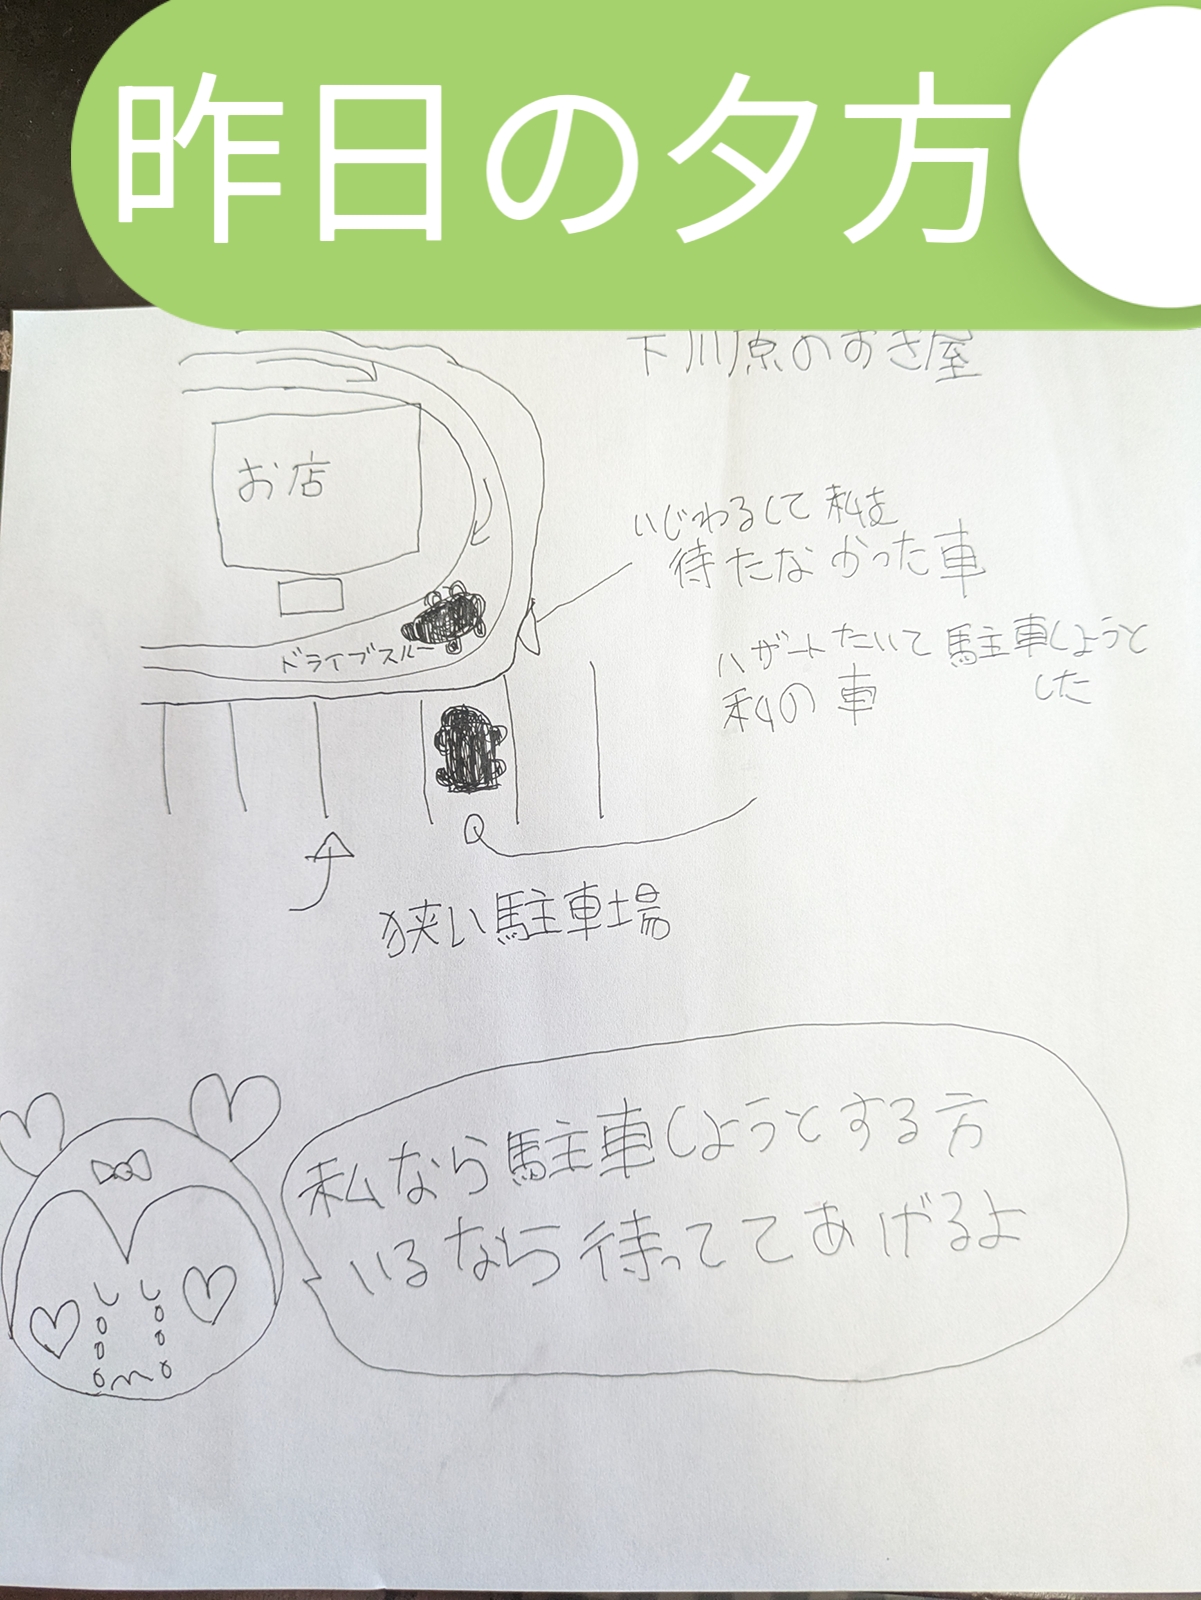 昨日の夕方
下川原のすき屋
お店
いじわるして私を
待たなかった車
ドライブスルー
ハザートたいて駐車しようと
した
私の車
狭い駐車場
私なら駐車しようとする方
いるなら待っててあげるよ